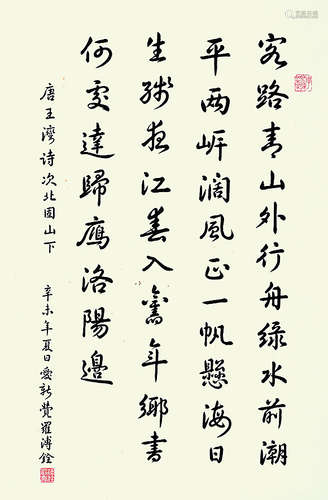 客路青山外行舟綠水前潮
平兩岸濶風正一帆懸海日
生殘夜江春入舊年鄉書
何處達歸鴈洛陽邊
唐王灣詩次北固山下
辛未年夏日愛新覺羅溥佺